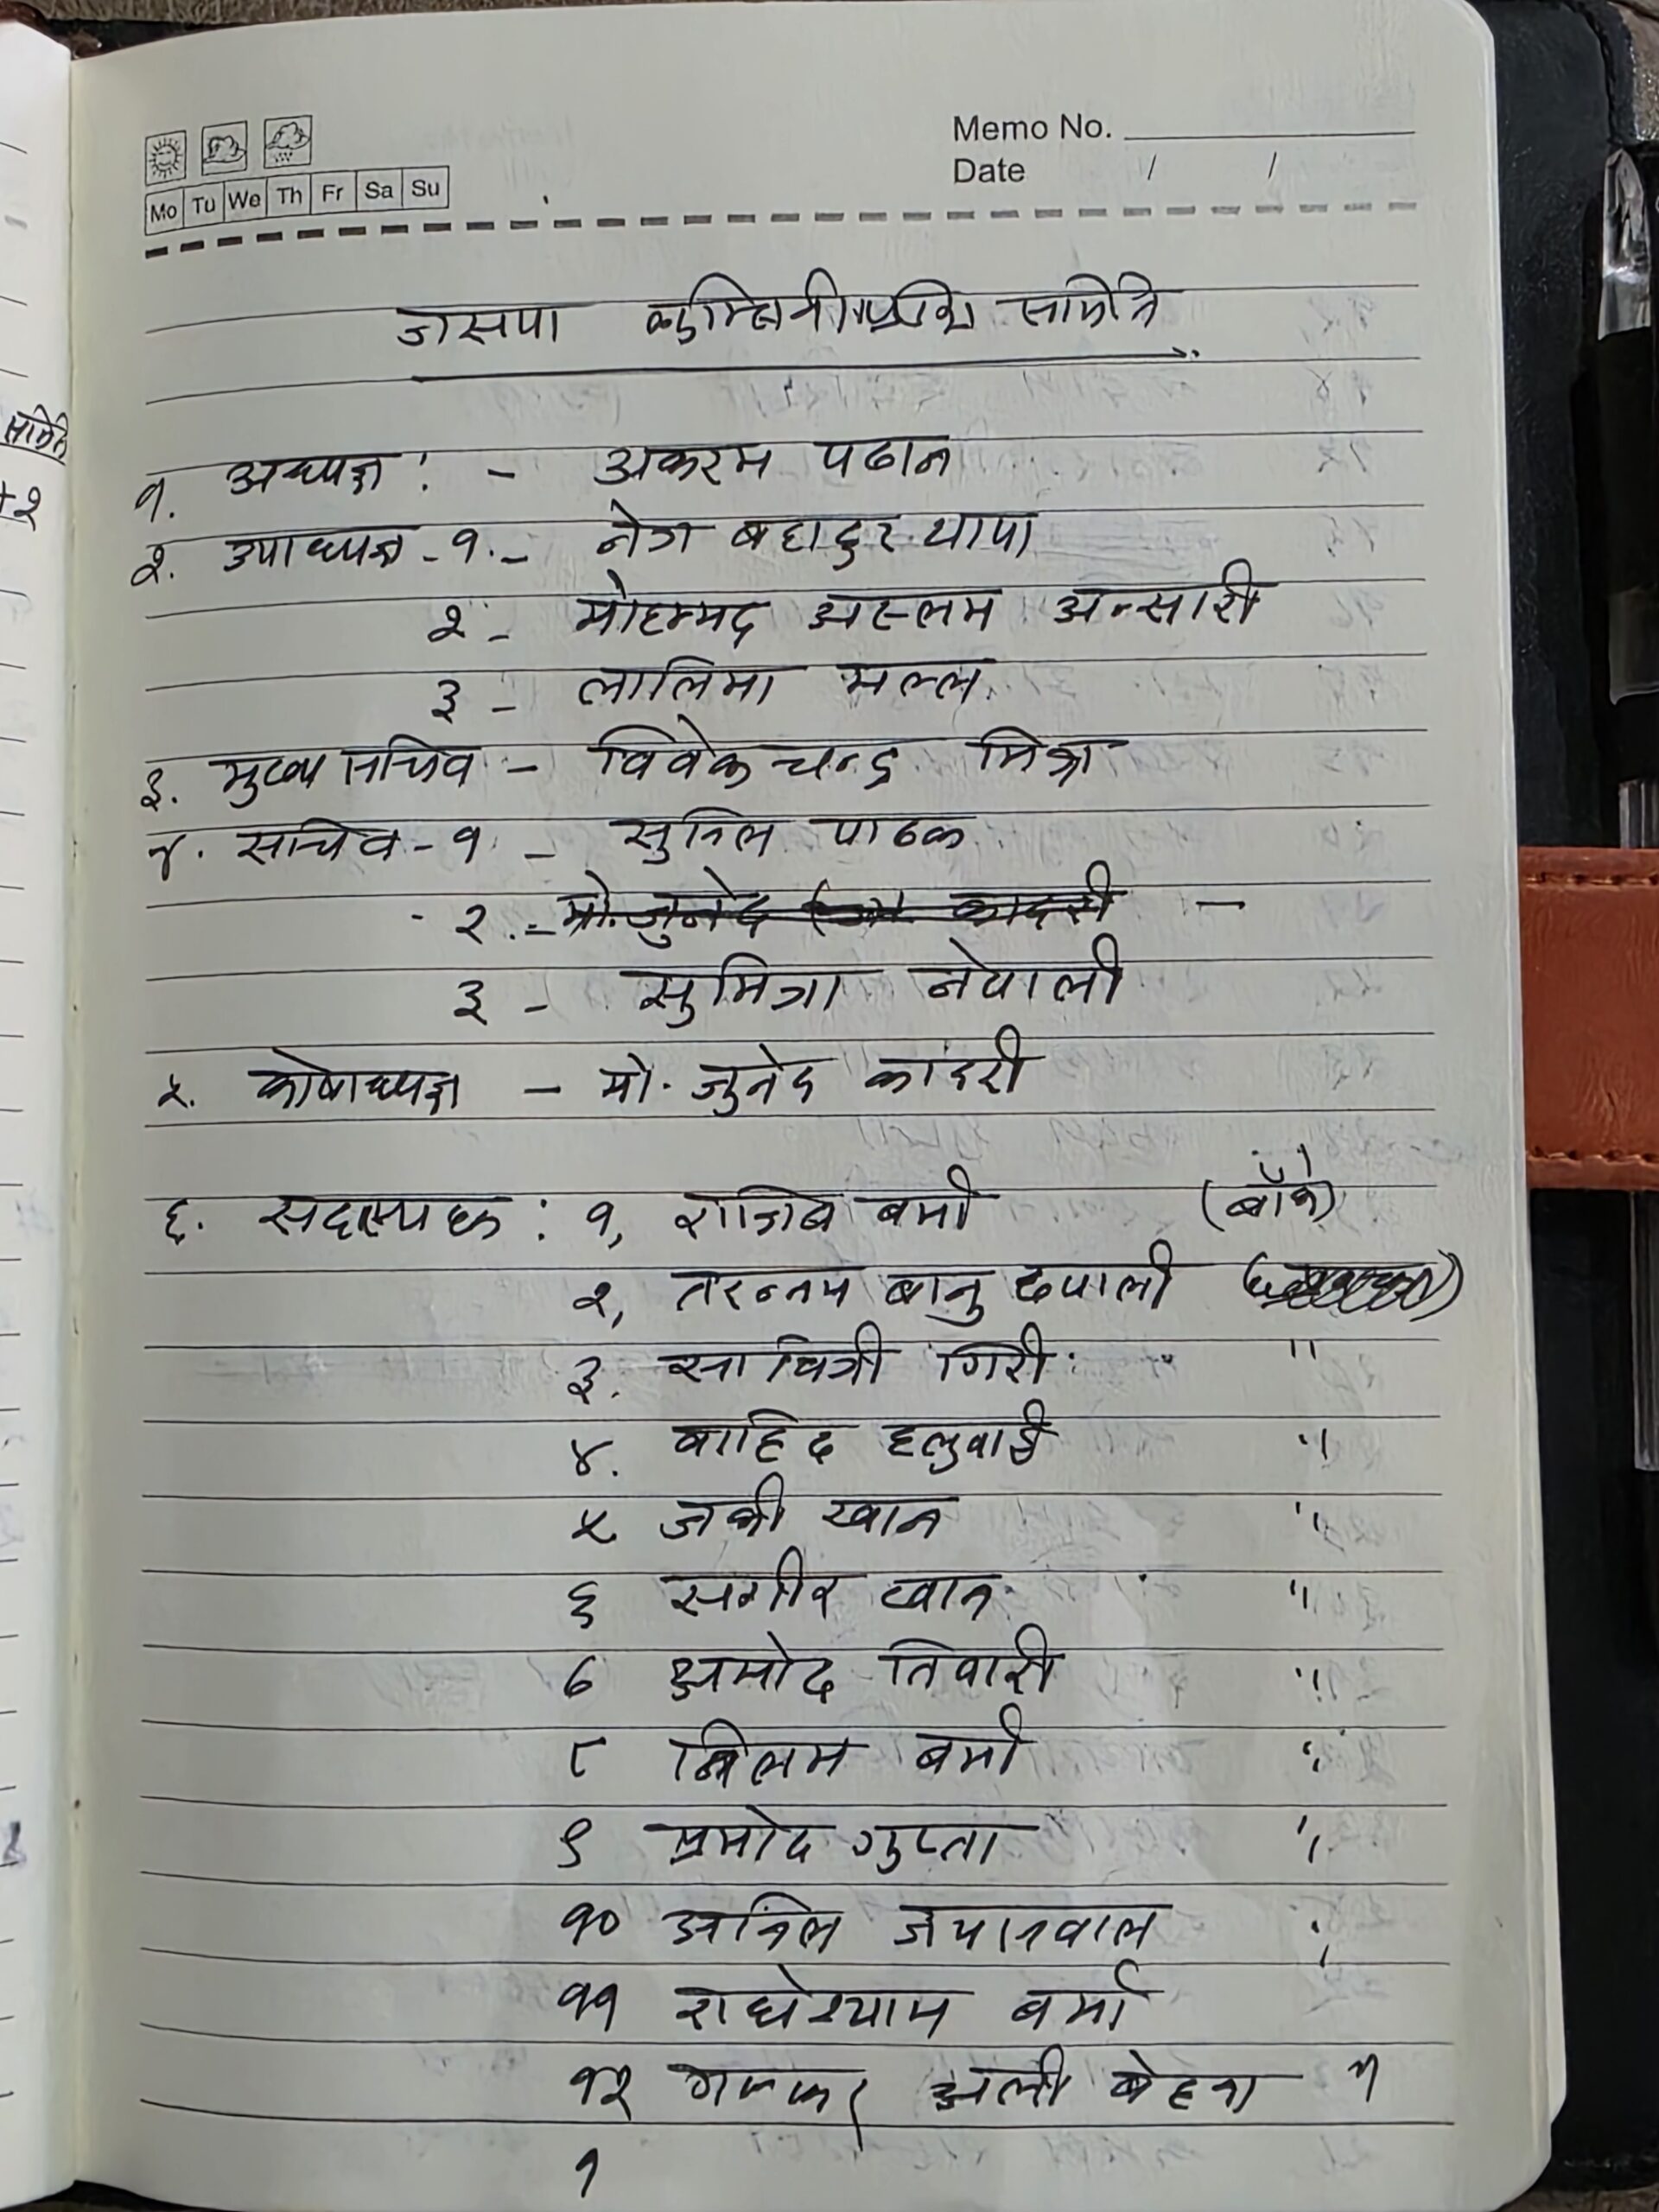 Memo No.
Mo Tu We Th Fr Sa Su
Date / /
जसपा लुम्बिनी प्रदेश समिति
समिति
१. अध्यक्ष : - अकरम पठान
+२
२. उपाध्यक्ष - १ - नेत्र बहादुर थापा
२ - मोहम्मद अस्लम अन्सारी
३ - लालिमा मल्ल
३. मुख्य सचिव - विवेक चन्द्र मिश्रा
४. सचिव - १ - सुनिल पाठक
२. - मो. जुनेद कादरी -
३ - सुमित्रा नेपाली
५. कोषाध्यक्ष - मो. जुनेद कादरी
६. सदस्यहरु : १, राजिव बर्मा (बाँके)
२, तरन्नम बानु दपाली
३. सावित्री गिरी "
४. वाहिद हलुवाई "
५ जकी खान "
६ सगीर खान "
७ अमोद तिवारी "
८ निलम बर्मा "
९ प्रमोद गुप्ता "
१० अनिल जयासवाल "
११ राधेश्याम बर्मा
१२ गफ्फार अली बेहना "
१